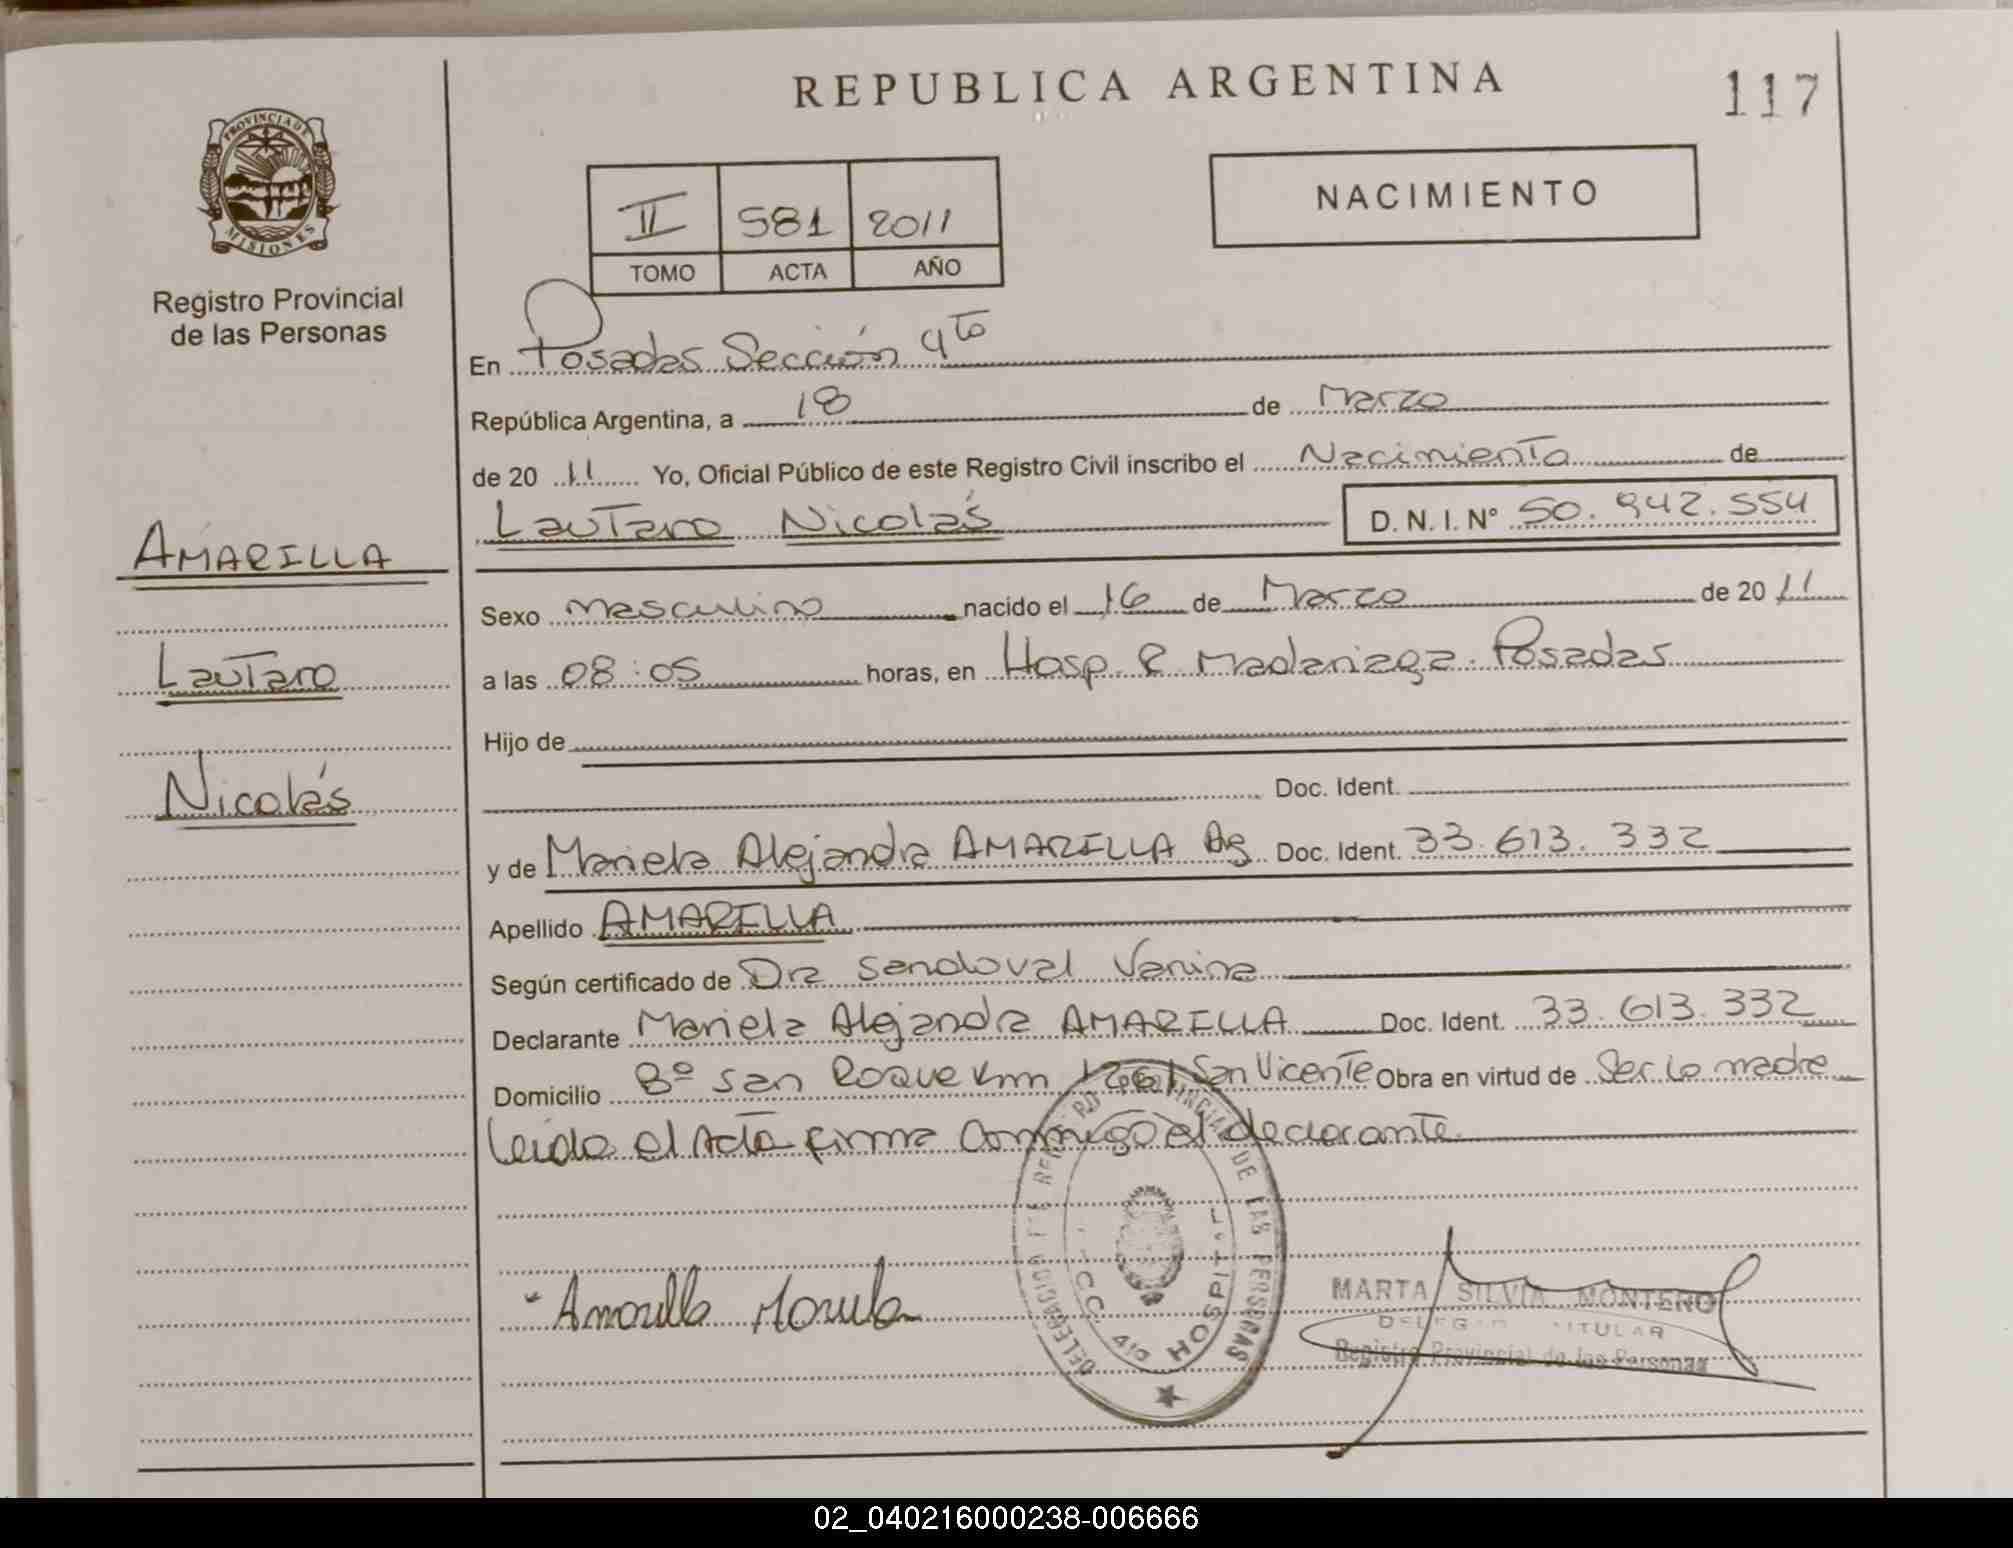 REPUBLICA ARGENTINA
117
PROVINCIA DE
MISIONES
Registro Provincial
de las Personas
II 581 2011
TOMO ACTA AÑO
NACIMIENTO
En Posadas Sección 4to
República Argentina, a 18 de Marzo
de 20 11 Yo, Oficial Público de este Registro Civil inscribo el Nacimiento de
Lautaro Nicolás D. N. I. Nº 50.942.554
AMARILLA
Lautaro
Nicolás
Sexo masculino nacido el 16 de Marzo de 20 11
a las 08:05 horas, en Hosp. R Madariaga. Posadas
Hijo de
Doc. Ident.
y de Mariela Alejandra AMARILLA Ag Doc. Ident. 33.613.332
Apellido AMARILLA
Según certificado de Dra Sandoval Vanina
Declarante Mariela Alejandra AMARILLA Doc. Ident. 33.613.332
Domicilio Bº San Roque Km 1261 San Vicente Obra en virtud de Ser la madre
Leida el Acta firma conmigo el declarante.
DELEGACION REGISTRO PROVINCIAL DE LAS PERSONAS
SECC. 4to HOSPITAL
Amarilla Mariela
MARTA SILVIA MONTERO
TITULAR
Registro Provincial de las Personas
02_040216000238-006666